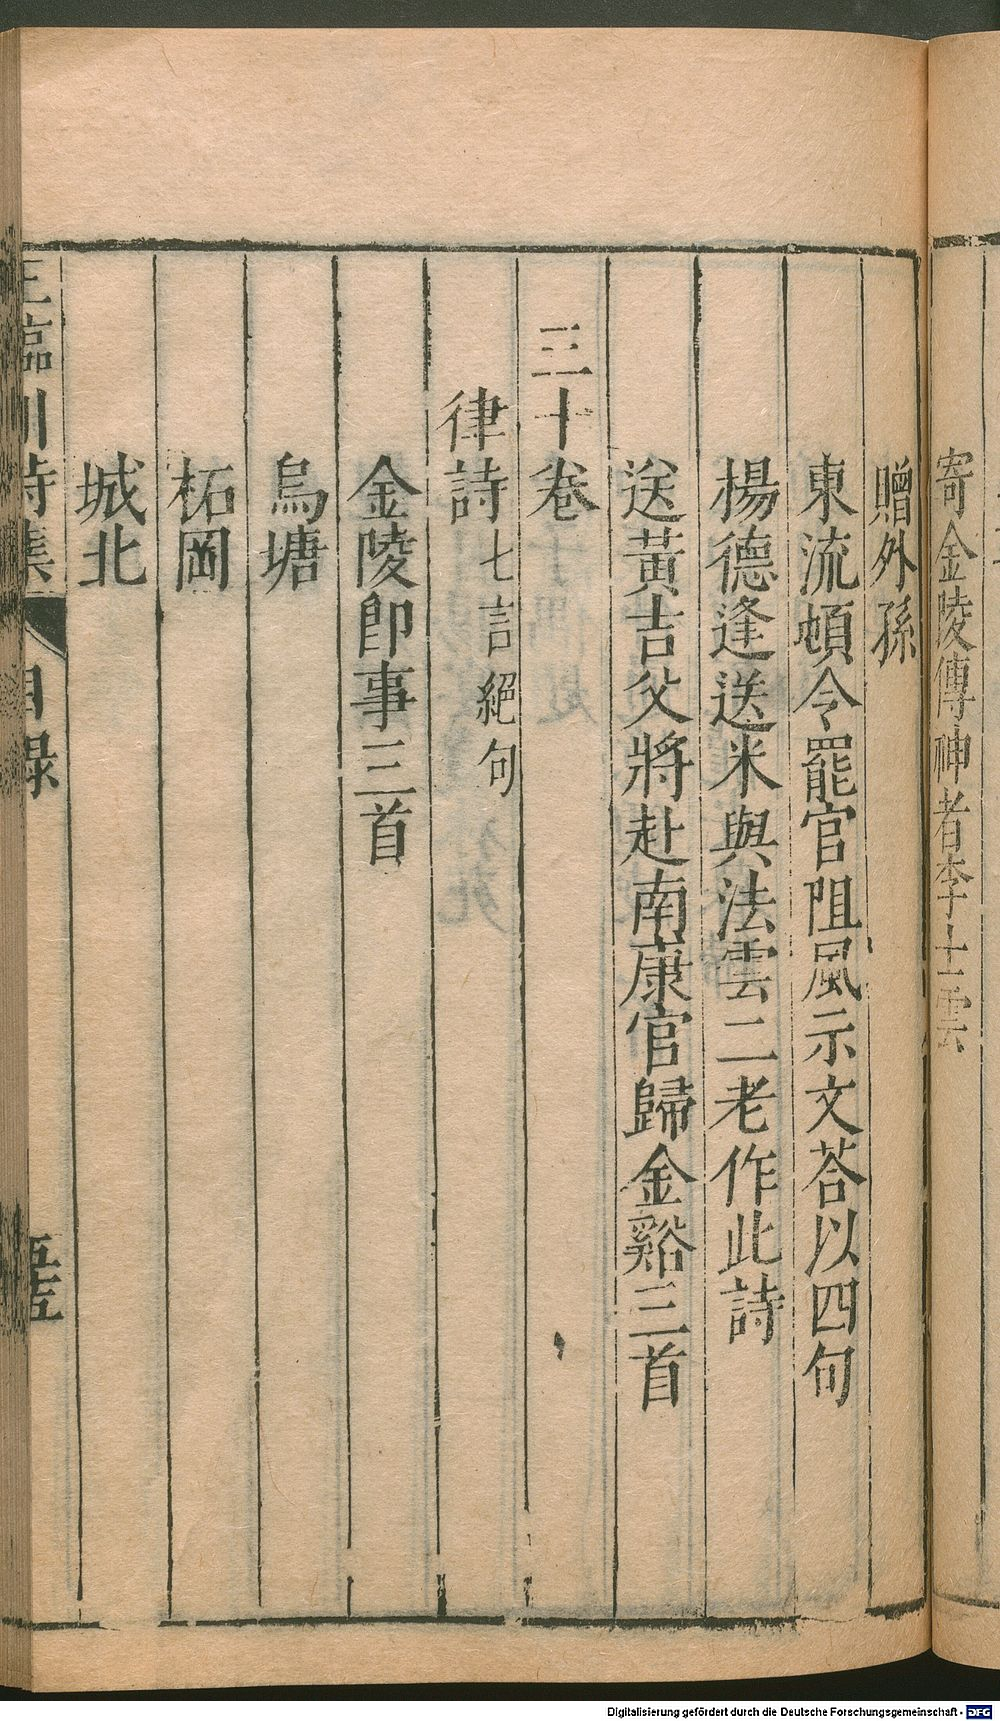 寄金陵傳神者李士雲
贈外孫
東流頓令罷官阻風示文荅以四句
楊德逢送米與法雲二老作此詩
送黃吉父將赴南康官歸金谿三首
三十卷
律詩七言絕句
金陵卽事三首
烏塘
柘岡
城北
王臨川詩集 目錄
Digitalisierung gefördert durch die Deutsche Forschungsgemeinschaft - DFG